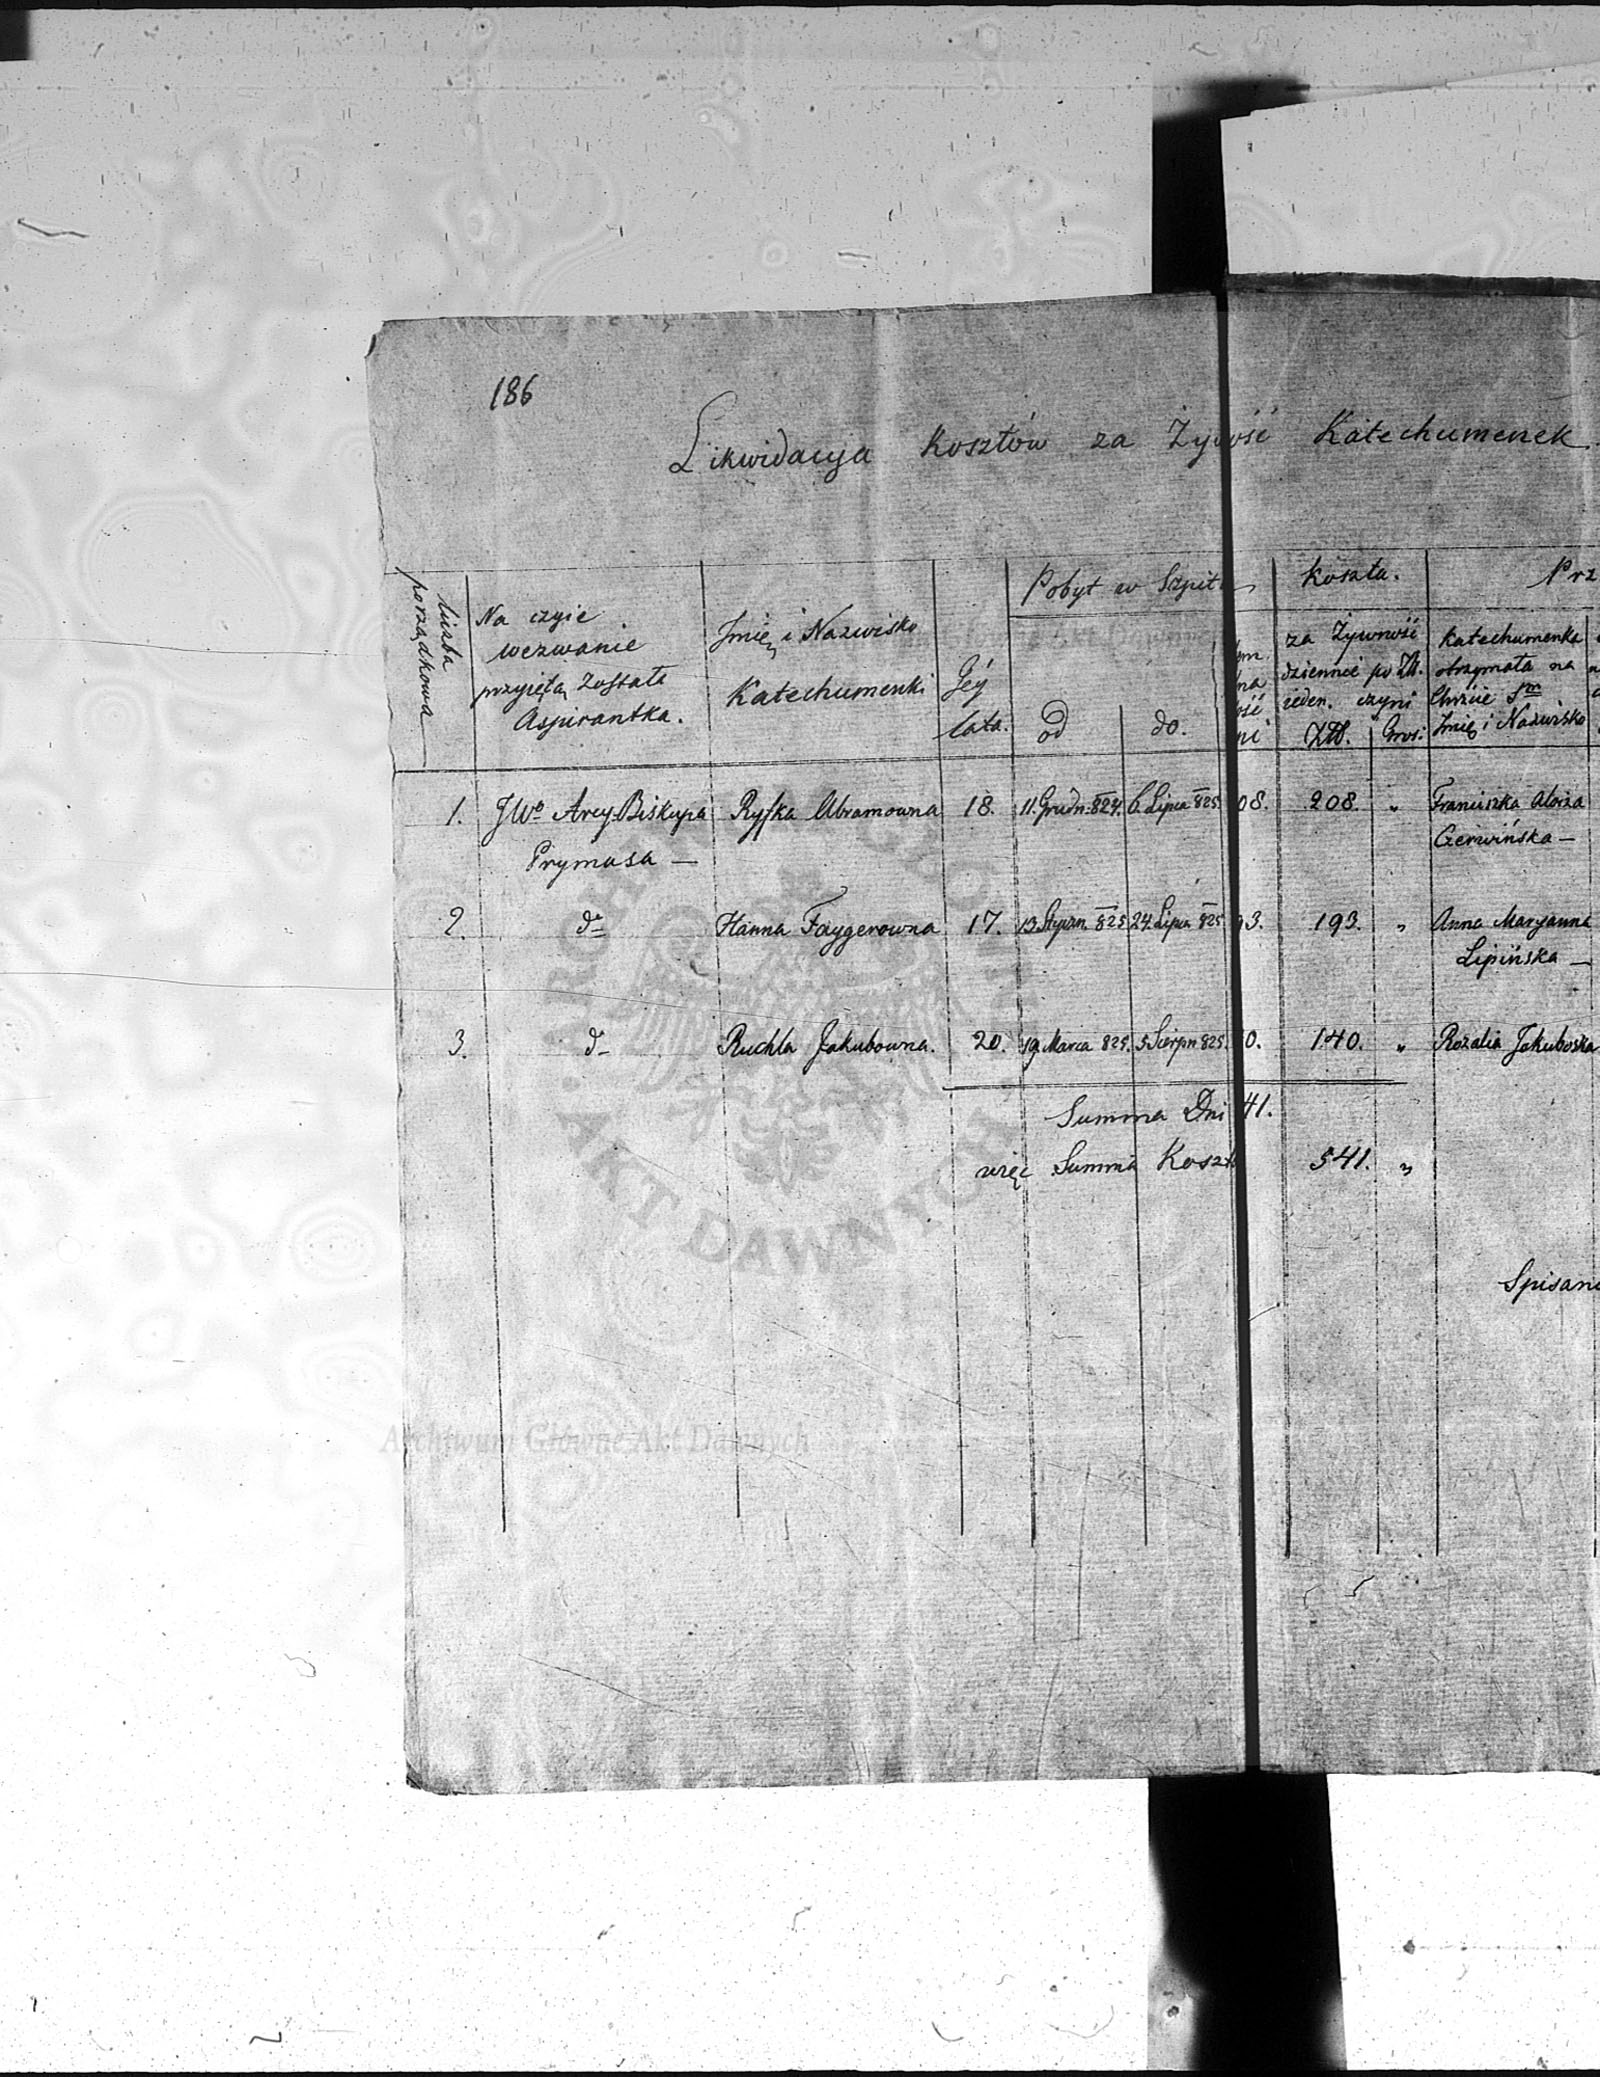 186
Likwidacyja Kosztów za Żywość Katechumenek
liczba porządkowa
Na czyie wezwanie przyiętą została Aspirantka.
Imię i Nazwisko Katechumenki
Jéy lata.
Pobyt w Szpit
od
do.
Koszta.
za Żywność dziennie po Złł. ieden. czyni
Złł.
Grosz:
Prz
Katechumenka otrzymała na Chrzcie Sm Imię i Nazwisko
1. JWo Arcy-Biskupa Ryfka Abramowna 18. 11. Grudn: 824. 6. Lipca 825. 08. 208. " Franciszka Aloiza
Prymasa — Gerwińska —
2. do Hanna Faygerowna 17. 13. Styczn. 825 24. Lipca 825 93. 193. " Anna Maryanna
Lipińska —
3. do Ruchla Jakubowna. 20. 19 Marca 825. 5 Sierpn 825. 0. 140. " Rozalia Jakuboska
Summa Dni 41.
więc Summa Koszt 541. "
Spisano
ARCHIWUM GŁÓWNE AKT DAWNYCH
Archiwum Główne Akt Dawnych